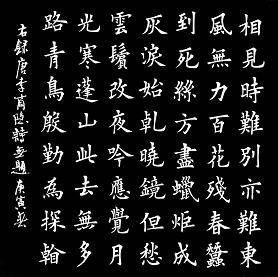 相見時難別亦難東
風無力百花殘春蠶
到死絲方盡蠟炬成
灰淚始乹曉鏡但愁
雲鬢改夜吟應覺月
光寒蓬山此去無多
路青鳥殷勤為探翰
右録唐李商隱詩無題 庚寅春